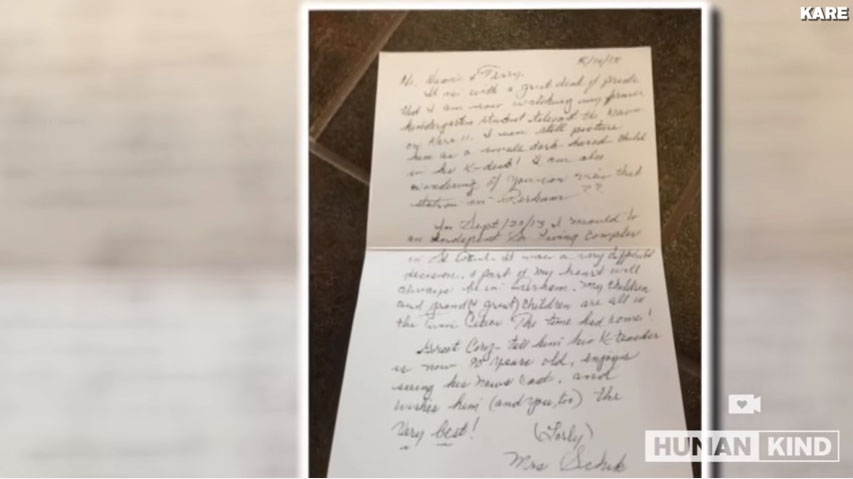 KARE
Hi, & Terry,
It is with a great deal of pride
that I am now watching my former
kindergarten student telecast the news
on Kare 11. I can still picture
him as a small dark haired child
in his K-desk! I am also
wondering if you can view that
station in Perham??
In Sept/2013 I moved to
an Independent Sr. Living Complex
in St. Paul. It was a very difficult
decision. A part of my heart will
always be in Perham. My children
and grand (& great) children are all in
the Twin Cities. The time had come!
Greet Cory - tell him his K-teacher
is now 90 years old, enjoys
seeing his News Cast, and
wishes him (and you, too) the
Very best!
Mrs
HUMANKIND